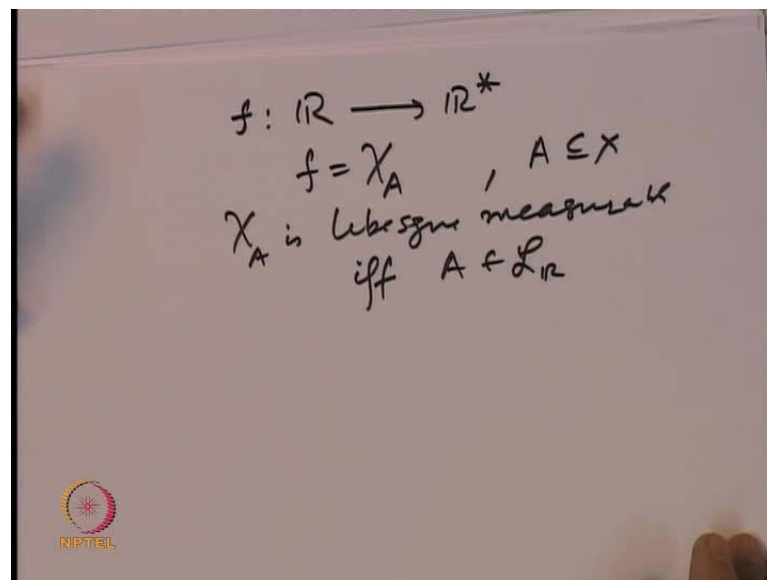 f : ℝ ⟶ ℝ*
f = χ_A , A ⊆ X
χ_A is Lebesgue measurable
iff A ∈ ℒ_ℝ
NPTEL